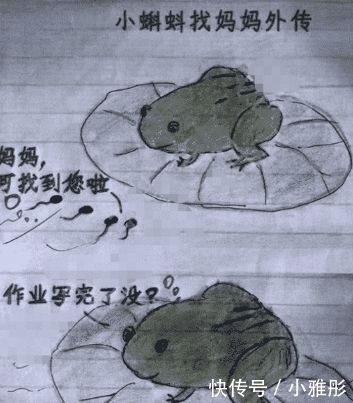 小蝌蚪找妈妈外传
妈妈,
可找到您啦
作业写完了没?
快传号 / 小雅彤